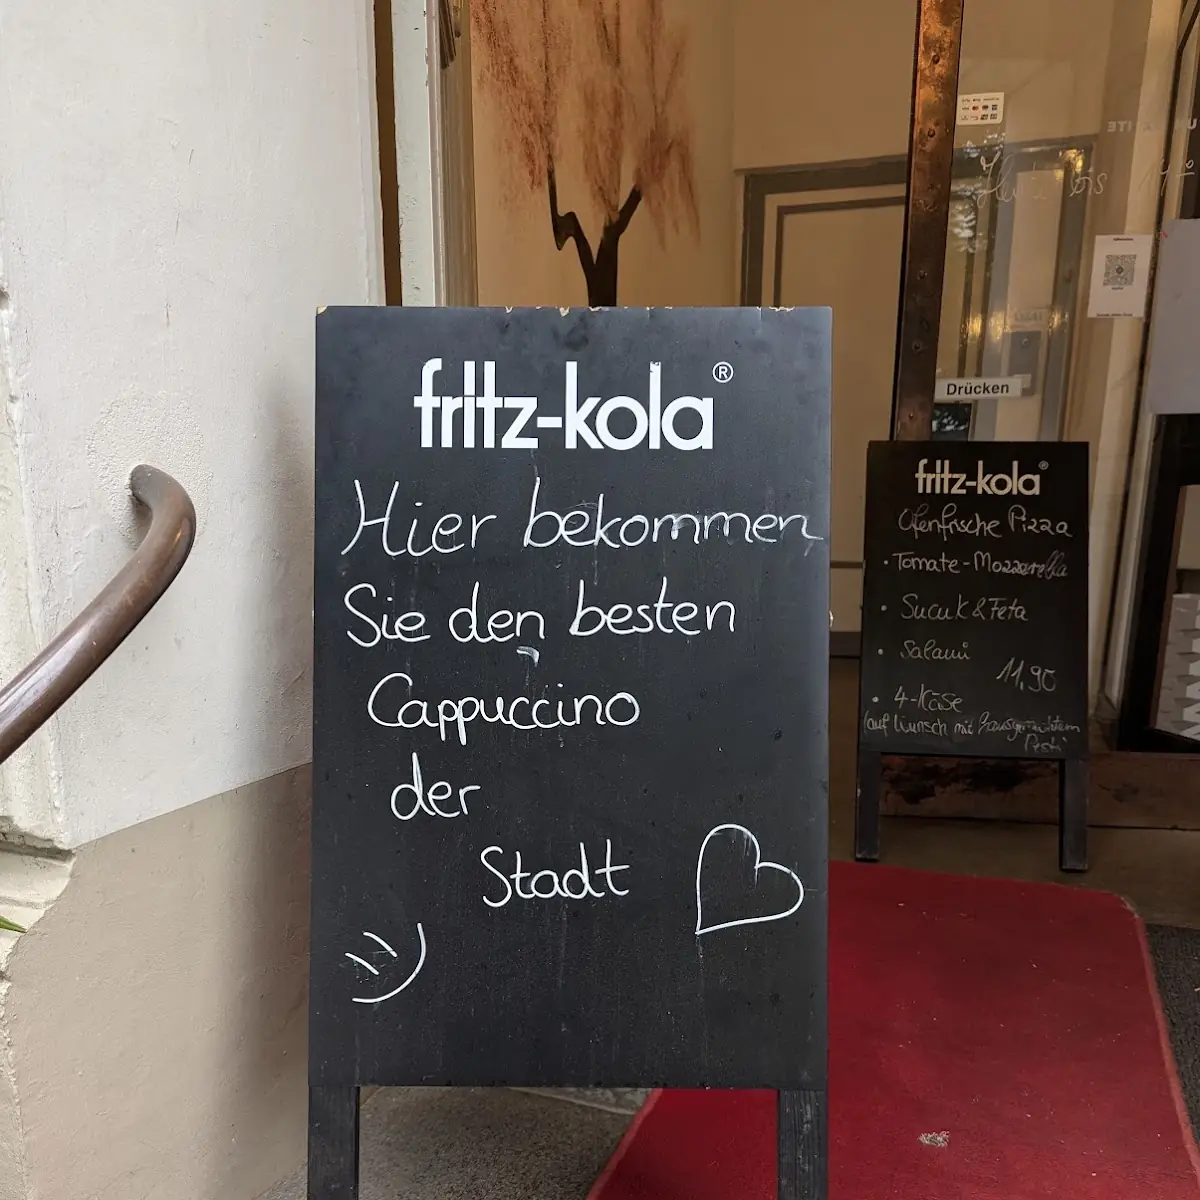 fritz-kola®
Hier bekommen
Sie den besten
Cappuccino
der
Stadt
Drücken
fritz-kola®
Ofenfrische Pizza
· Tomate-Mozzarella
· Sucuk & Feta
· Salami
11,90
· 4-Käse
(auf Wunsch mit hausgemachtem
Pesto